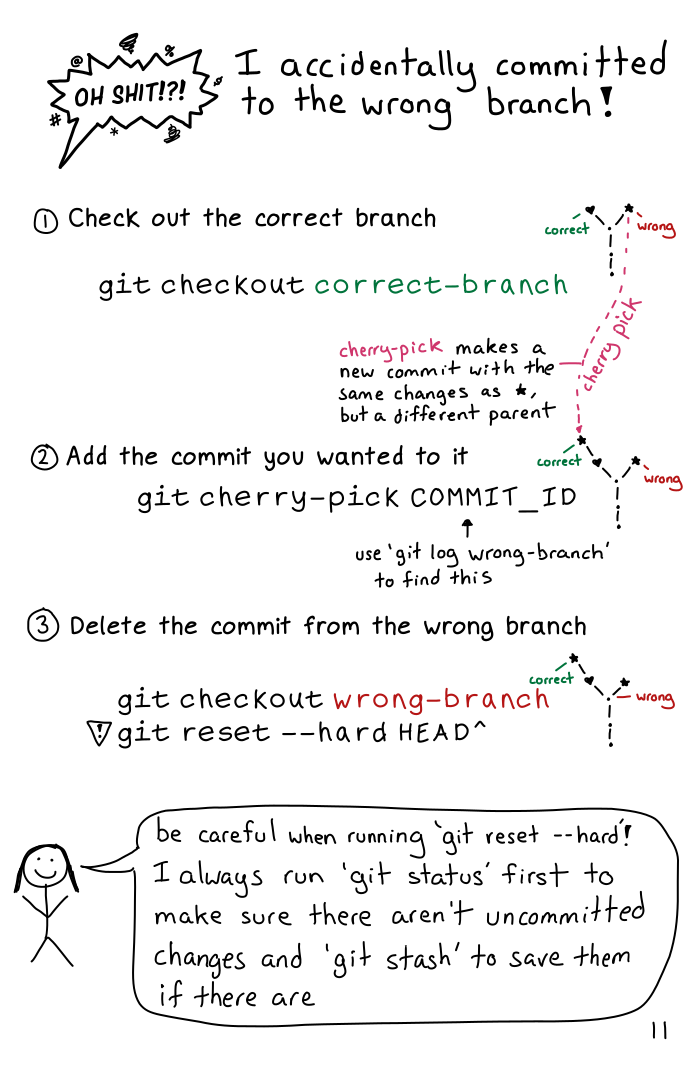 OH SHIT!?!
I accidentally committed
to the wrong branch!
① Check out the correct branch
correct
wrong
git checkout correct-branch
cherry pick
cherry-pick makes a
new commit with the
same changes as ★,
but a different parent
② Add the commit you wanted to it
correct
wrong
git cherry-pick COMMIT_ID
use 'git log wrong-branch'
to find this
③ Delete the commit from the wrong branch
correct
wrong
git checkout wrong-branch
git reset --hard HEAD^
be careful when running 'git reset --hard'!
I always run 'git status' first to
make sure there aren't uncommitted
changes and 'git stash' to save them
if there are
11